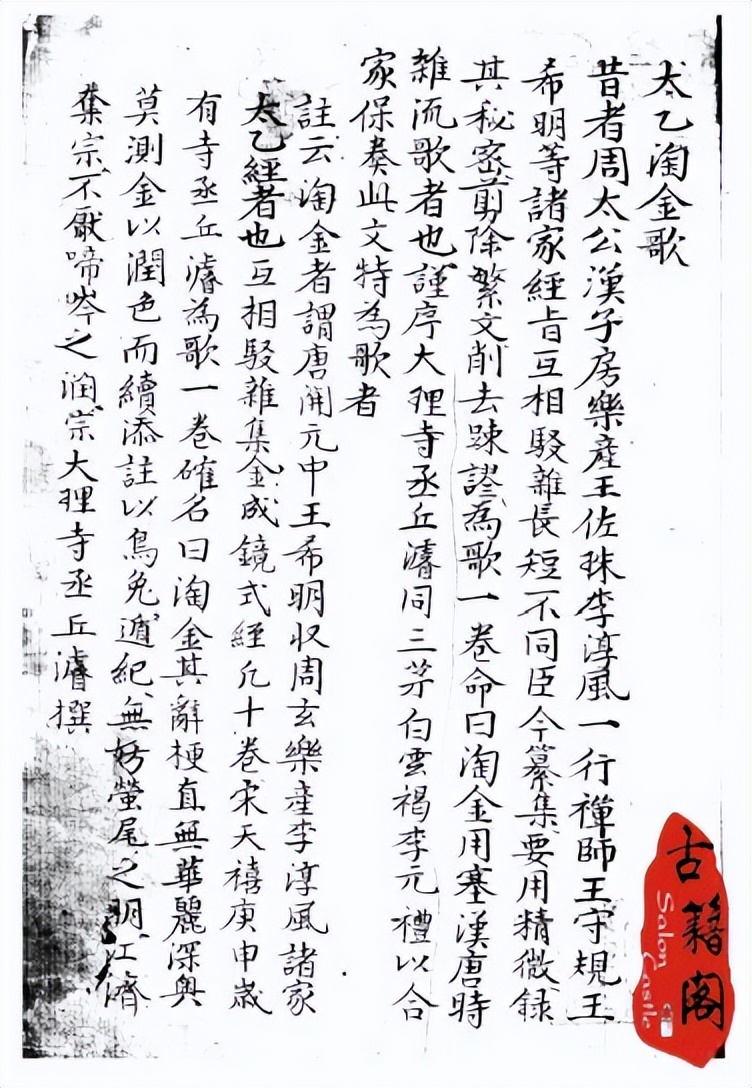 太乙淘金歌
昔者周太公漢子房樂產王佐珠李淳風一行禪師王守規王
希明等諸家經旨互相駁雜長短不同臣今纂集要用精微録
其秘密剪除繁文削去踈謬為歌一卷命曰淘金用塞漢唐時
雜流歌者也謹序大理寺丞丘濬同三茅白雲褐李元禮以合
家保奏此文特為歌者
註云淘金者謂唐開元中王希明收周玄樂產李淳風諸家
太乙經者也互相駁雜集金成鏡式經凡十卷宋天禧庚申歲
有寺丞丘濬為歌一卷確名曰淘金其辭梗直無華麗深奧
莫測金以潤色而續添註以烏兔遁紀無妨螢尾之明江濟
奔宗不猒啼岑之潤宗大理寺丞丘濬撰
古籍阁
Salon Castle